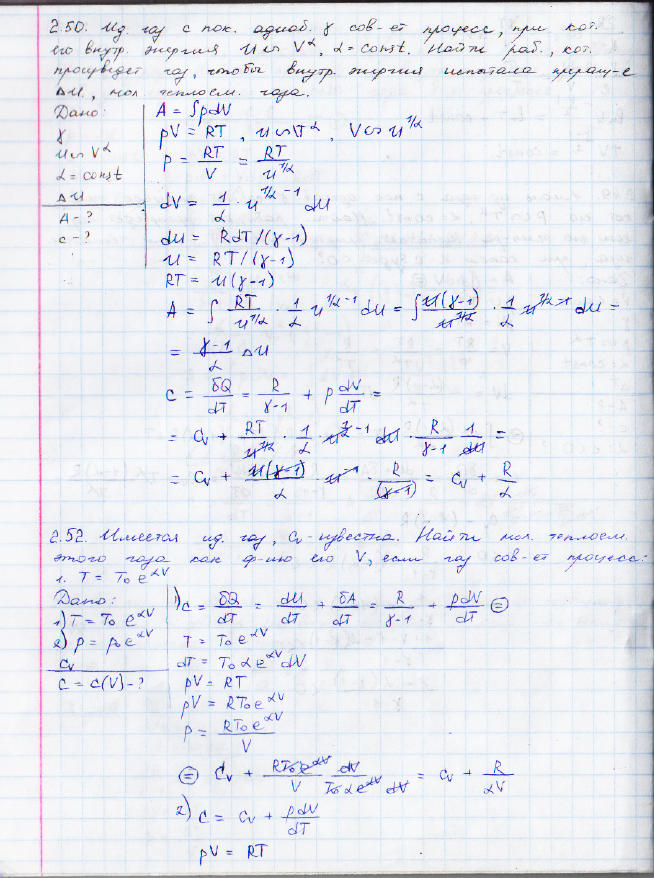 2.50. Ид. газ с пок. адиаб. γ сов-ет процесс, при кот.
его внутр. энергия U ∽ V^α, α = const. Найти раб., кот.
произведет газ, чтобы внутр. энергия испытала приращ-е
ΔU, мол. теплоем. газа.
Дано:
γ
U ∽ V^α
α = const
ΔU
A - ?
c - ?
A = ∫pdV
pV = RT, U ∽ V^α, V ∽ U^{1/α}
p = RT/V = RT/U^{1/α}
dV = 1/α · U^{1/α - 1} dU
dU = RdT/(γ-1)
U = RT/(γ-1)
RT = U(γ-1)
A = ∫ RT/U^{1/α} · 1/α U^{1/α - 1} dU = ∫ U(γ-1)/U^{1/α} · 1/α U^{1/α - 1} dU =
= (γ-1)/α ΔU
C = δQ/dT = R/(γ-1) + p dV/dT =
= Cv + RT/U^{1/α} · 1/α · U^{1/α - 1} dU · R/(γ-1) 1/dU =
= Cv + U(γ-1)/α · U^{-1} · R/(γ-1) = Cv + R/α
2.52. Имеется ид. газ, Cv - известна. Найти мол. теплоем.
этого газа как ф-ию его V, если газ сов-ет процесс:
1. T = T₀ e^{αV}
Дано:
1) T = T₀ e^{αV}
2) p = p₀ e^{αV}
Cv
C = C(V) - ?
1) C = δQ/dT = dU/dT + δA/dT = R/(γ-1) + pdV/dT ⊜
T = T₀ e^{αV}
dT = T₀ α e^{αV} dV
pV = RT
pV = RT₀ e^{αV}
P = RT₀ e^{αV}/V
⊜ Cv + RT₀ e^{αV}/V dV/(T₀ α e^{αV} dV) = Cv + R/(αV)
2) C = Cv + pdV/dT
pV = RT